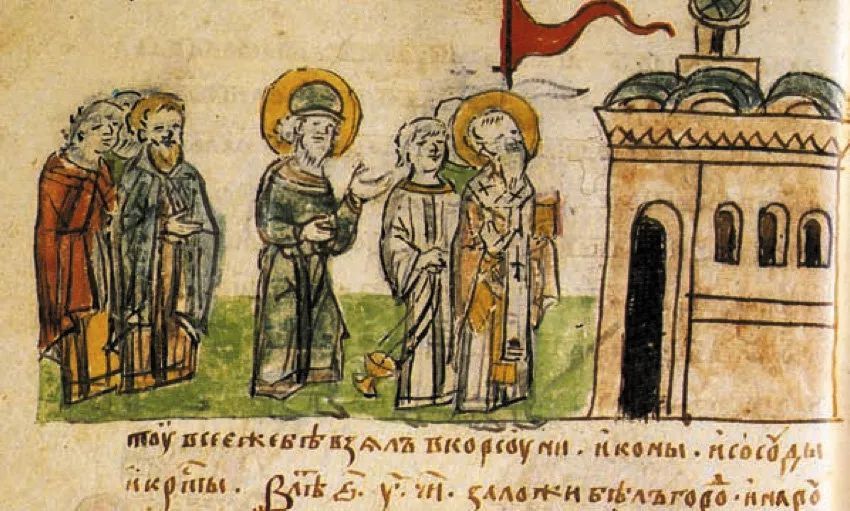 тоу все еже бѣ взялъ в корсоуни · иконы · и сосоуды
и крⷭ҇ты · В лѣⷮ ҂ѕ҃ · у҃ · заложи бѣлъгороⷣ · и наро